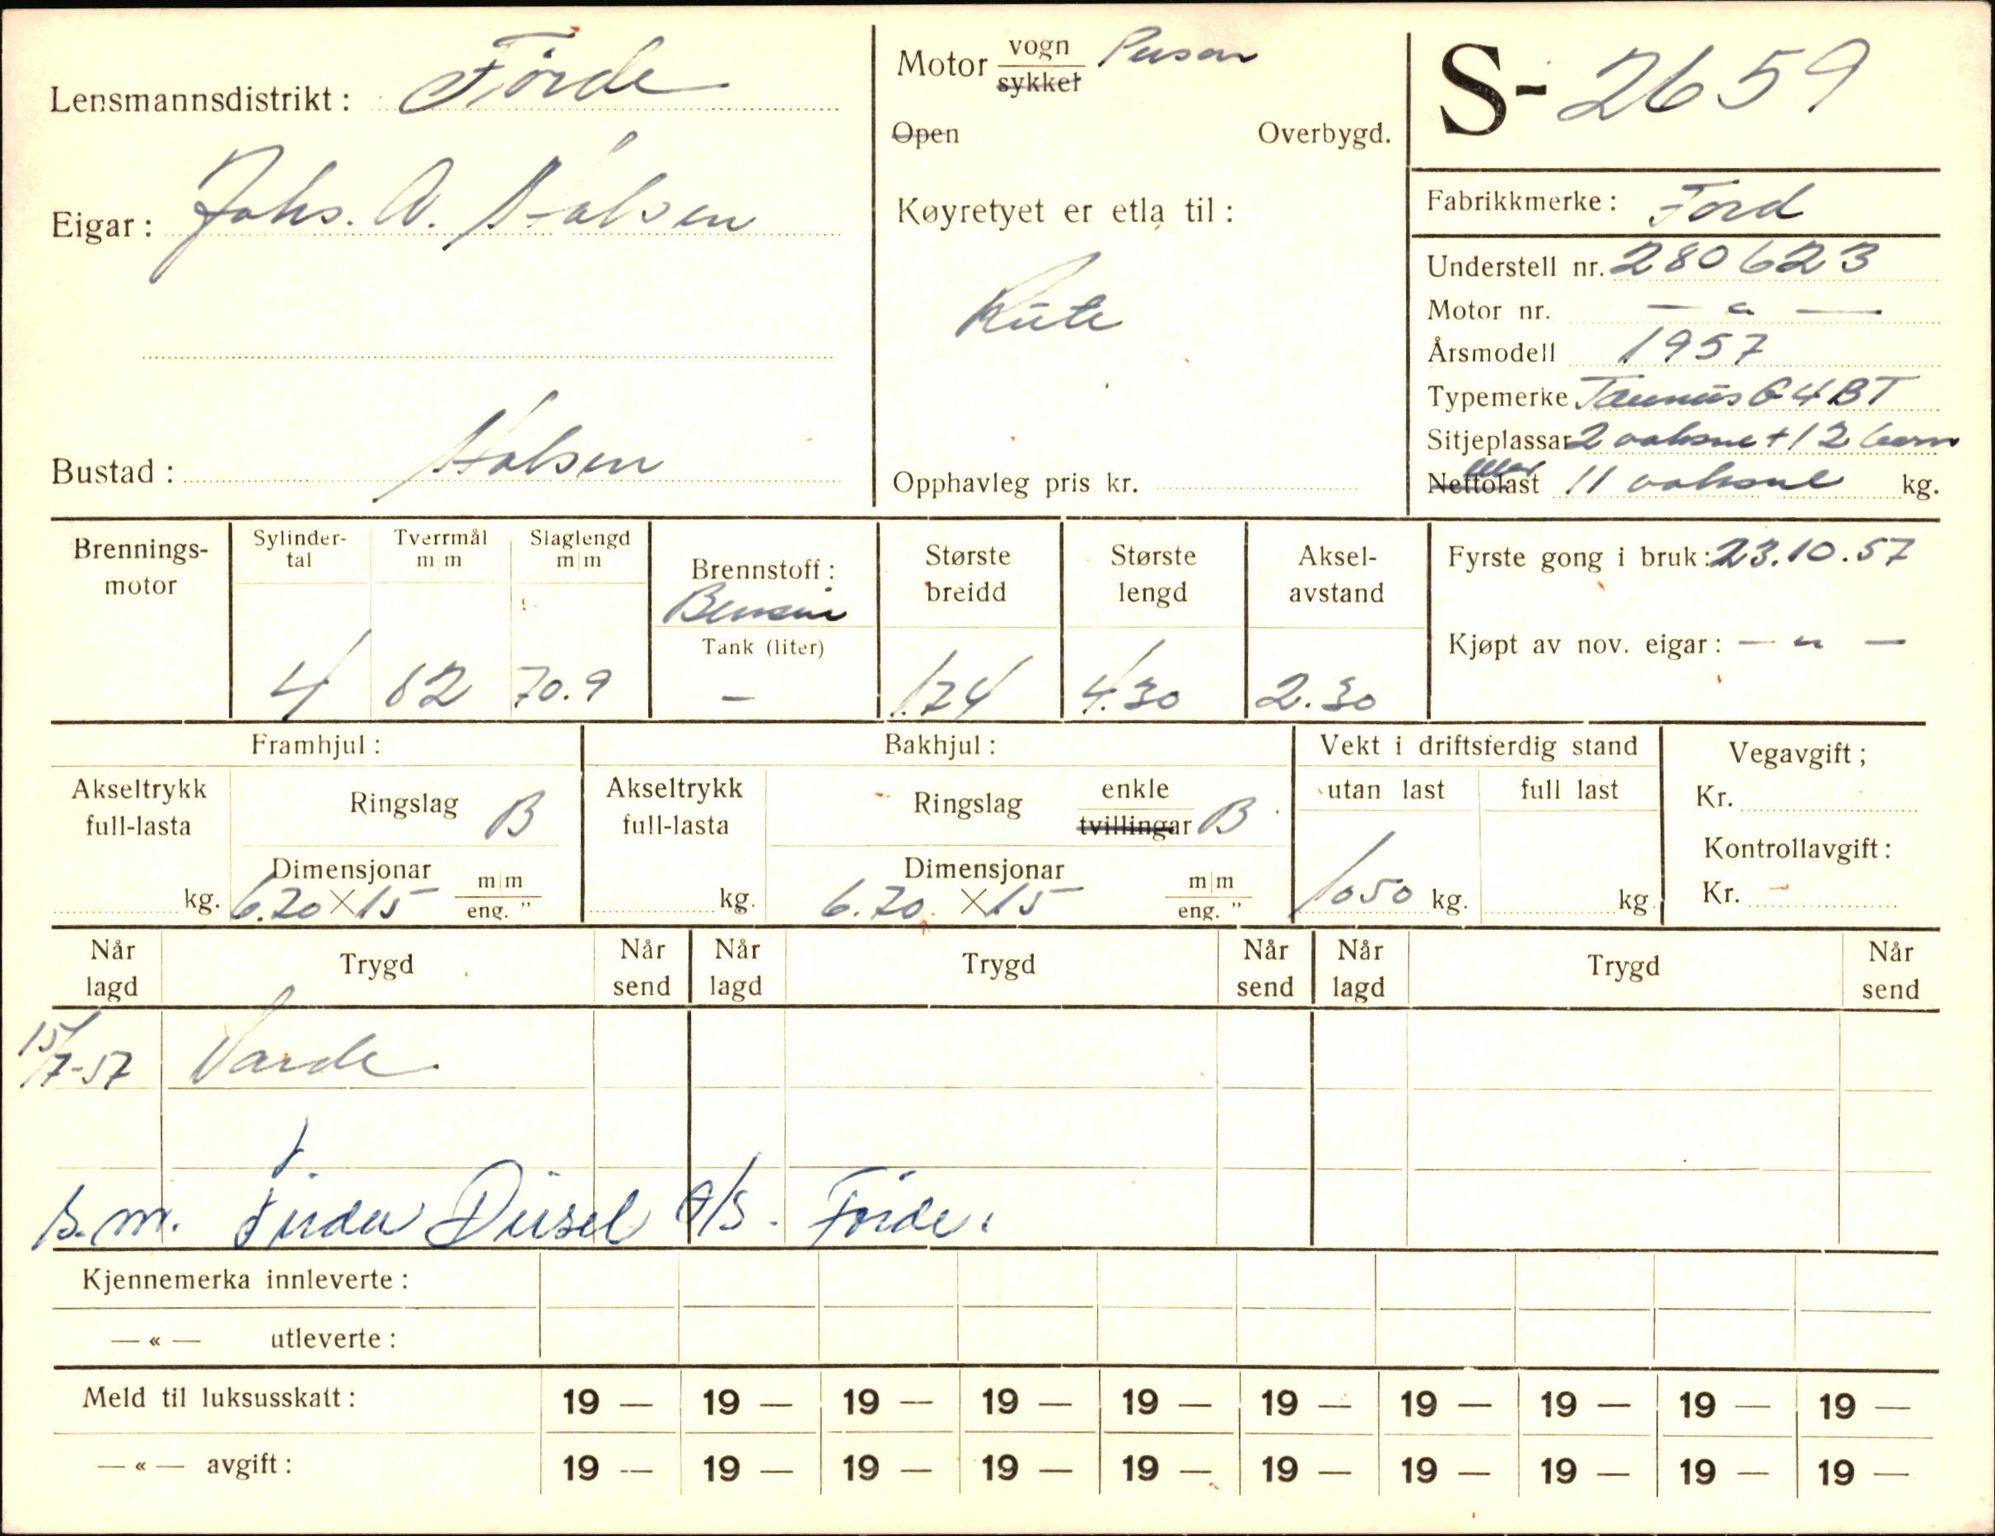 Lensmannsdistrikt: Førde
Eigar: Johs. A. Halsen
Bustad: Halsen
Motor vogn Person
sykkel
Open Overbygd.
Køyretyet er etla til:
Rute
Opphavleg pris kr.
S- 2659
Fabrikkmerke: Ford
Understell nr. 280623
Motor nr. — " —
Årsmodell 1957
Typemerke Taunus G4BT
Sitjeplassar 2 vaksne + 12 born
eller
Nettolast 11 vaksne kg.
Brennings-
motor
Sylinder-
tal
4
Tverrmål
m|m
82
Slaglengd
m|m
70.9
Brennstoff:
Bensin
Tank (liter)
—
Største
breidd
1.74
Største
lengd
4.30
Aksel-
avstand
2.30
Fyrste gong i bruk: 23.10.57
Kjøpt av nov. eigar: — " —
Framhjul:
Akseltrykk
full-lasta
kg.
Ringslag B
Dimensjonar m|m
6.70 × 15 eng. "
Bakhjul:
Akseltrykk
full-lasta
kg.
Ringslag enkle
tvillingar B
Dimensjonar m|m
6.70 × 15 eng. "
Vekt i driftsferdig stand
utan last full last
1050 kg. kg
Vegavgift;
Kr.
Kontrollavgift:
Kr.
Når
lagd
Trygd
Når
send
Når
lagd
Trygd
Når
send
Når
lagd
Trygd
Når
send
15/7-57 Varde
s.m. Firda Diesel A/S. Førde.
Kjennemerka innleverte:
— « — utleverte:
Meld til luksusskatt: 19 — 19 — 19 — 19 — 19 — 19 — 19 — 19 — 19 — 19 —
— « — avgift: 19 — 19 — 19 — 19 — 19 — 19 — 19 — 19 — 19 — 19 —